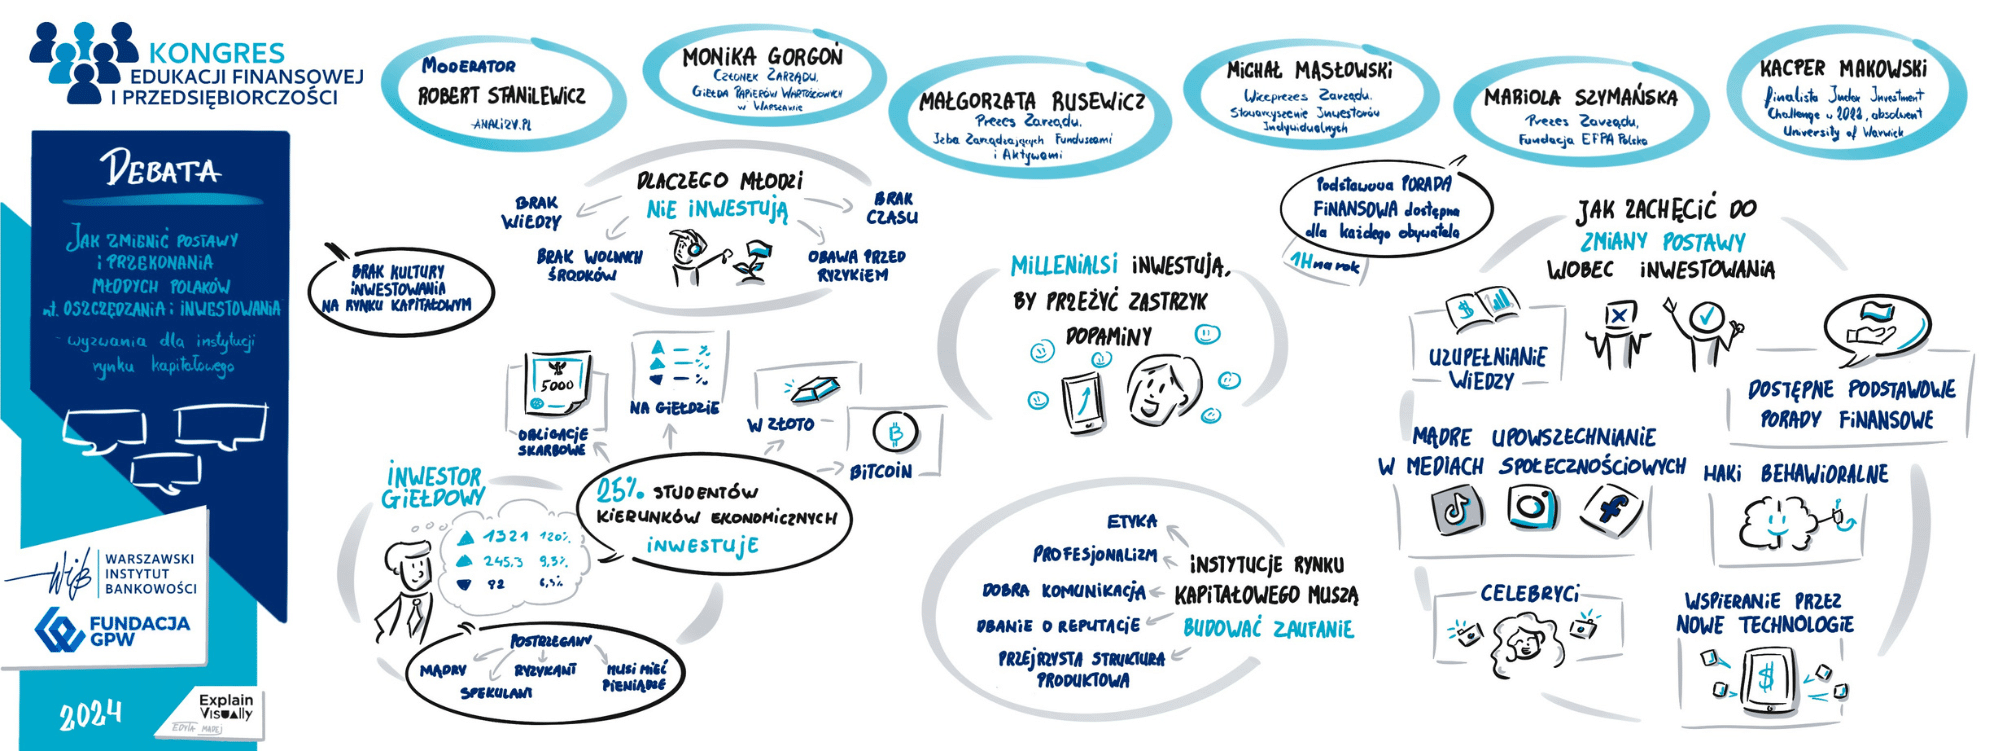 KONGRES
EDUKACJI FINANSOWEJ
I PRZEDSIĘBIORCZOŚCI
DEBATA
JAK ZMIENIĆ POSTAWY
i PRZEKONANIA
MŁODYCH POLAKÓW
nt. OSZCZĘDZANIA i INWESTOWANIA
- wyzwania dla instytucji
rynku kapitałowego
WIB
WARSZAWSKI
INSTYTUT
BANKOWOŚCI
FUNDACJA
GPW
2024
Explain
Visually
EDYTA MADEJ
MODERATOR
ROBERT STANILEWICZ
ANALIZY.PL
MONIKA GORGOŃ
CZŁONEK ZARZĄDU,
GIEŁDA PAPIERÓW WARTOŚCIOWYCH
W WARSZAWIE
MAŁGORZATA RUSEWICZ
Prezes Zarządu,
Izba Zarządzających Funduszami
i Aktywami
MICHAŁ MASŁOWSKI
Wiceprezes Zarządu,
Stowarzyszenie Inwestorów
Indywidualnych
MARIOLA SZYMAŃSKA
Prezes Zarządu,
Fundacja EFPA Polska
KACPER MAKOWSKI
finalista Index Investment
Challenge w 2022, absolwent
University of Warwick
DLACZEGO MŁODZI
NIE INWESTUJĄ
BRAK
WIEDZY
BRAK
CZASU
BRAK WOLNYCH
ŚRODKÓW
OBAWA PRZED
RYZYKIEM
BRAK KULTURY
INWESTOWANIA
NA RYNKU KAPITAŁOWYM
5000
OBLIGACJE
SKARBOWE
%
%
%
NA GIEŁDZIE
W ZŁOTO
B
BITCOIN
25% STUDENTÓW
KIERUNKÓW EKONOMICZNYCH
INWESTUJE
INWESTOR
GIEŁDOWY
1321 120%
245,3 9,3%
92 6,5%
POSTRZEGANY
MĄDRY
SPEKULANT
RYZYKANT
MUSI MIEĆ
PIENIĄDZE
MILLENIALSI INWESTUJĄ,
BY PRZEŻYĆ ZASTRZYK
DOPAMINY
INSTYTUCJE RYNKU
KAPITAŁOWEGO MUSZĄ
BUDOWAĆ ZAUFANIE
ETYKA
PROFESJONALIZM
DOBRA KOMUNIKACJA
DBANIE O REPUTACJE
PRZEJRZYSTA STRUKTURA
PRODUKTOWA
Podstawowa PORADA
FINANSOWA dostępna
dla każdego obywatela
1H na rok
JAK ZACHĘCIĆ DO
ZMIANY POSTAWY
WOBEC INWESTOWANIA
$
UZUPEŁNIANIE
WIEDZY
DOSTĘPNE PODSTAWOWE
PORADY FINANSOWE
MĄDRE UPOWSZECHNIANIE
W MEDIACH SPOŁECZNOŚCIOWYCH
f
HAKI BEHAWIORALNE
CELEBRYCI
WSPIERANIE PRZEZ
NOWE TECHNOLOGIE
$